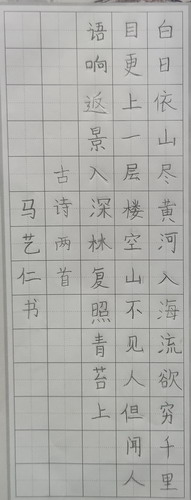 白日依山尽黄河入海流欲穷千里
目更上一层楼空山不见人但闻人
语响返景入深林复照青苔上
古诗两首
马艺仁书